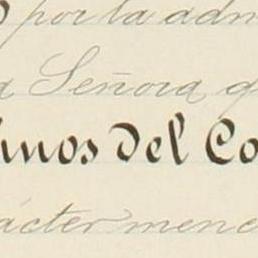 por la adm
a Señora q
mnos del Co
ácter menc